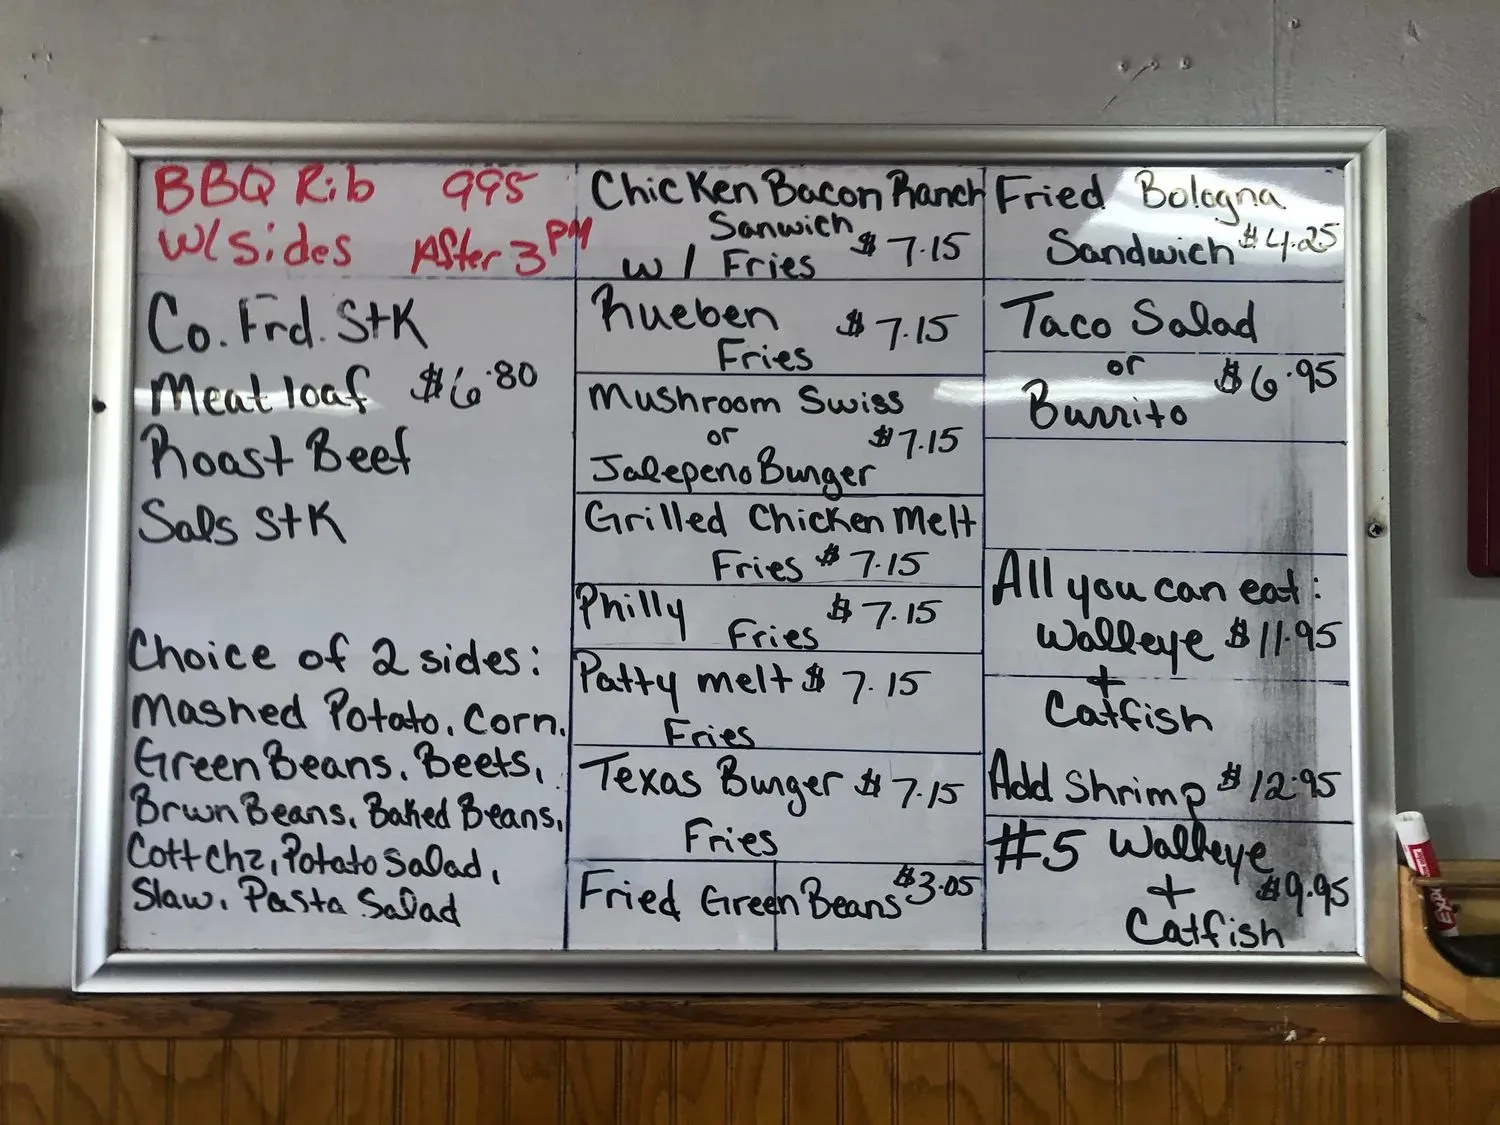 BBQ Rib 995
W/sides After 3PM
Co. Frd. Stk
Meat loaf $6.80
Roast Beef
Sals Stk
Choice of 2 sides:
Mashed Potato, Corn,
Green Beans, Beets,
Brwn Beans, Baked Beans,
Cott Chz, Potato Salad,
Slaw, Pasta Salad
Chicken Bacon Ranch
Sanwich
w/ Fries $7.15
Rueben $7.15
Fries
Mushroom Swiss
or $7.15
Jalepeno Burger
Grilled Chicken Melt
Fries $7.15
Philly $7.15
Fries
Patty melt $7.15
Fries
Texas Burger $7.15
Fries
Fried Green Beans $3.05
Fried Bologna
Sandwich $4.25
Taco Salad
or $6.95
Burrito
All you can eat:
Walleye $11.95
+
Catfish
Add Shrimp $12.95
#5 Walleye
+ $9.95
Catfish